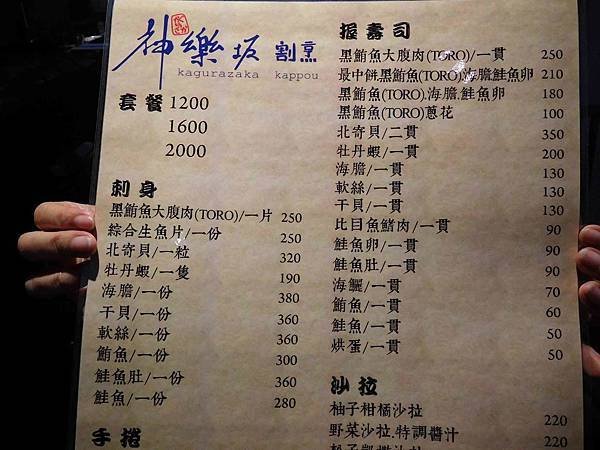 神樂坂 割烹
kagurazaka kappou
套餐 1200
1600
2000
刺身
黑鮪魚大腹肉(TORO)/一片 250
綜合生魚片/一份 250
北奇貝/一粒 320
牡丹蝦/一隻 190
海膽/一份 380
干貝/一份 360
軟絲/一份 360
鮪魚/一份 300
鮭魚肚/一份 360
鮭魚/一份 280
手捲
握壽司
黑鮪魚大腹肉(TORO)/一貫 250
最中餅.黑鮪魚(TORO).海膽.鮭魚卵 210
黑鮪魚(TORO).海膽.鮭魚卵 180
黑鮪魚(TORO)蔥花 100
北奇貝/二貫 350
牡丹蝦/一貫 200
海膽/一貫 130
軟絲/一貫 130
干貝/一貫 130
比目魚鰭肉/一貫 90
鮭魚卵/一貫 90
鮭魚肚/一貫 90
海鱺/一貫 70
鮪魚/一貫 60
鮭魚/一貫 50
烘蛋/一貫 50
沙拉
柚子柑橘沙拉 220
野菜沙拉.特調醬汁 220